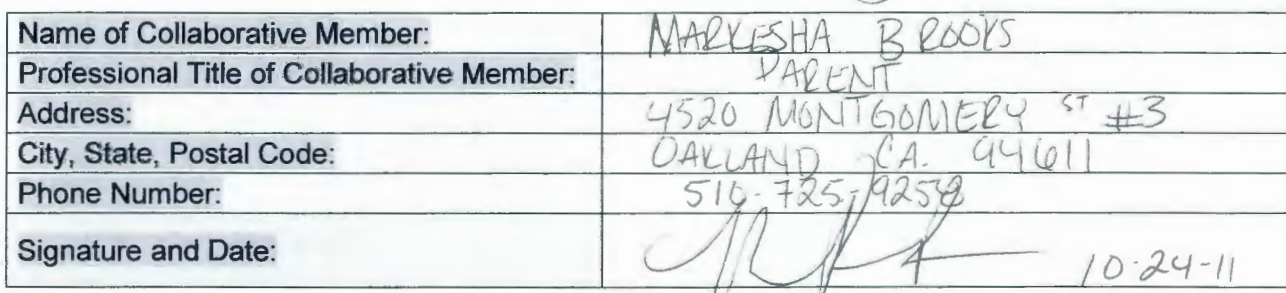 Name of Collaborative Member: MARKESHA BROOKS
Professional Title of Collaborative Member: PARENT
Address: 4520 MONTGOMERY ST #3
City, State, Postal Code: OAKLAND CA. 94611
Phone Number: 510-725-9258
Signature and Date: 10-24-11